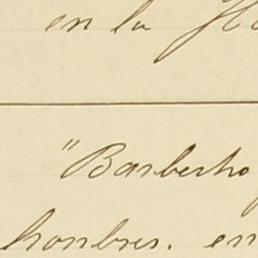 en la
"Barberho
hombres. en